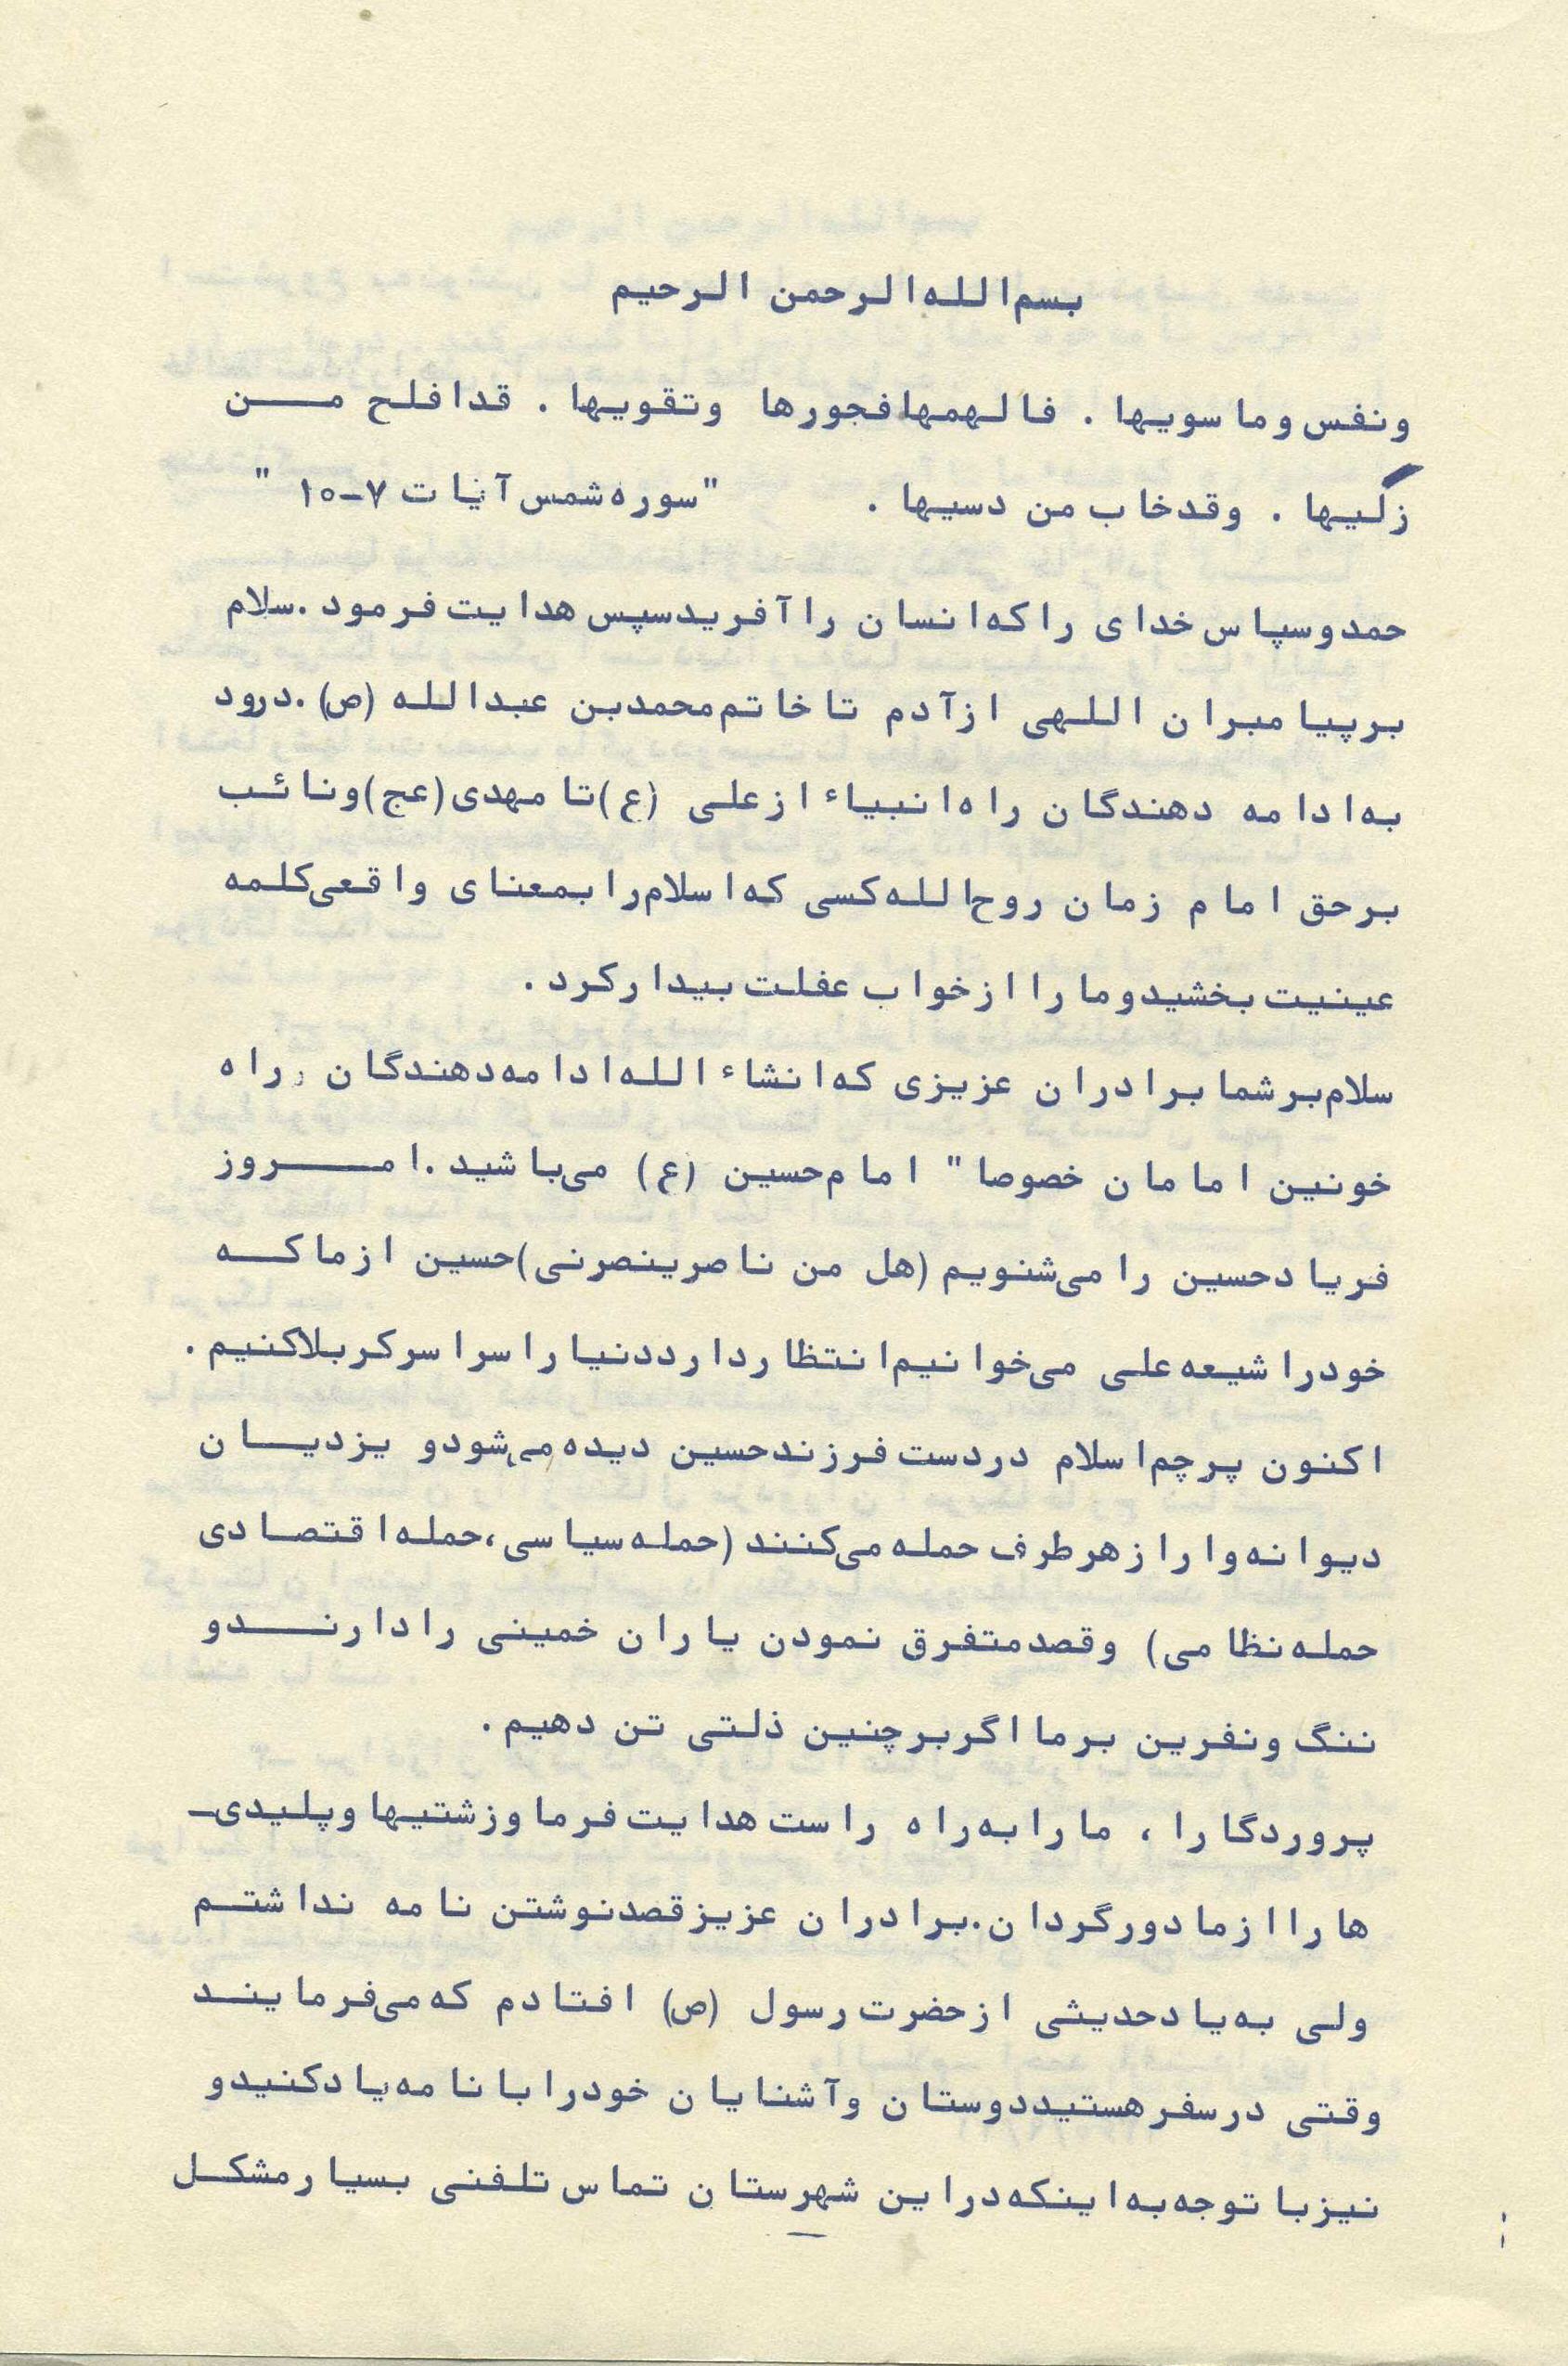 بسم الله الرحمن الرحیم
ونفس وما سویها . فالهمها فجورها وتقویها . قد افلح من
زکیها . وقد خاب من دسیها . "سوره شمس آیات ۷-۱۰"
حمد و سپاس خدای را که انسان را آفرید سپس هدایت فرمود . سلام
بر پیامبران اللهی از آدم تا خاتم محمدبن عبدالله (ص) . درود
به ادامه دهندگان راه انبیاء از علی (ع) تا مهدی (عج) و نائب
برحق امام زمان روح الله کسی که اسلام را بمعنای واقعی کلمه
عینیت بخشید و ما را از خواب عفلت بیدار کرد .
سلام بر شما برادران عزیزی که انشاء الله ادامه دهندگان راه
خونین امامان خصوصا" امام حسین (ع) می‌باشید . امروز
فریاد حسین را می‌شنویم (هل من ناصر ینصرنی) حسین از ما که
خود را شیعه علی می‌خوانیم انتظار دارد دنیا را سراسر کربلا کنیم .
اکنون پرچم اسلام در دست فرزند حسین دیده می‌شود و یزدیان
دیوانه وا را زهر طرف حمله می‌کنند (حمله سیاسی ، حمله اقتصادی
حمله نظامی) و قصد متفرق نمودن یاران خمینی را دارند و
ننگ و نفرین بر ما اگر بر چنین ذلتی تن دهیم .
پروردگارا ، ما را به راه راست هدایت فرما و زشتیها و پلیدی-
ها را از ما دور گردان . برادران عزیز قصد نوشتن نامه نداشتم
ولی به یاد حدیثی از حضرت رسول (ص) افتادم که می‌فرمایند
وقتی در سفر هستید دوستان و آشنایان خود را با نامه یاد کنید و
نیز با توجه به اینکه در این شهرستان تماس تلفنی بسیار مشکل